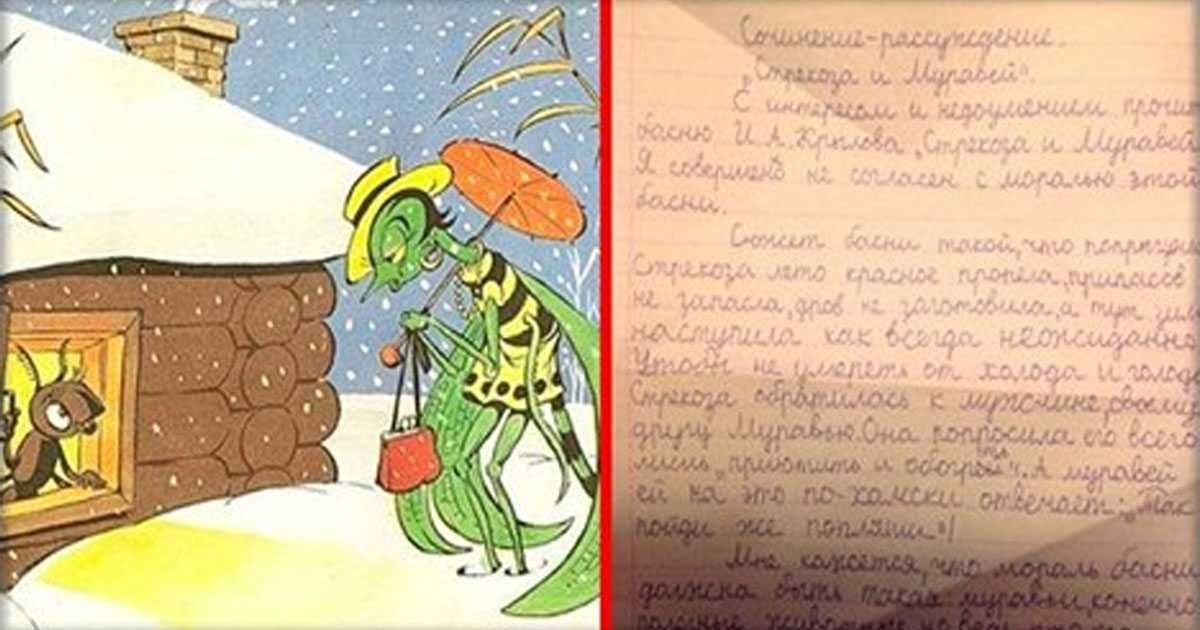 Сочинение-рассуждение.
"Стрекоза и Муравей".
С интересом и недоумением прочи
басню И.А.Крылова "Стрекоза и Муравей
Я совершено не согласен с моралью этой
басни.
Сюжет басни такой, что попрыгунья
Стрекоза лето красное пропела, припасов
не запасла, дров не заготовила, а тут зим
наступила как всегда неожиданно
Чтобы не умереть от холода и голода
Стрекоза обратилась к мужчине, своему
другу Муравью. Она попросила его всего
лишь "приютить и обогреть". А муравей
ей на это по-хамски отвечает: "Так
пойди же попляши"!
Мне кажется, что мораль басни
должна быть такая: муравьи, конечно
полезные животные, но